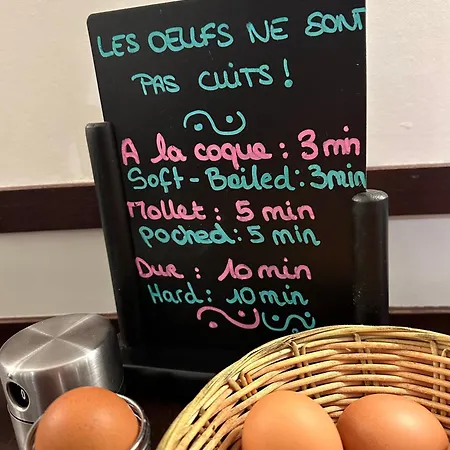 LES OEUFS NE SONT
PAS CUITS !
A la coque : 3 min
Soft-Boiled : 3min
Mollet : 5 min
poched : 5 min
Dur : 10 min
Hard : 10 min
0